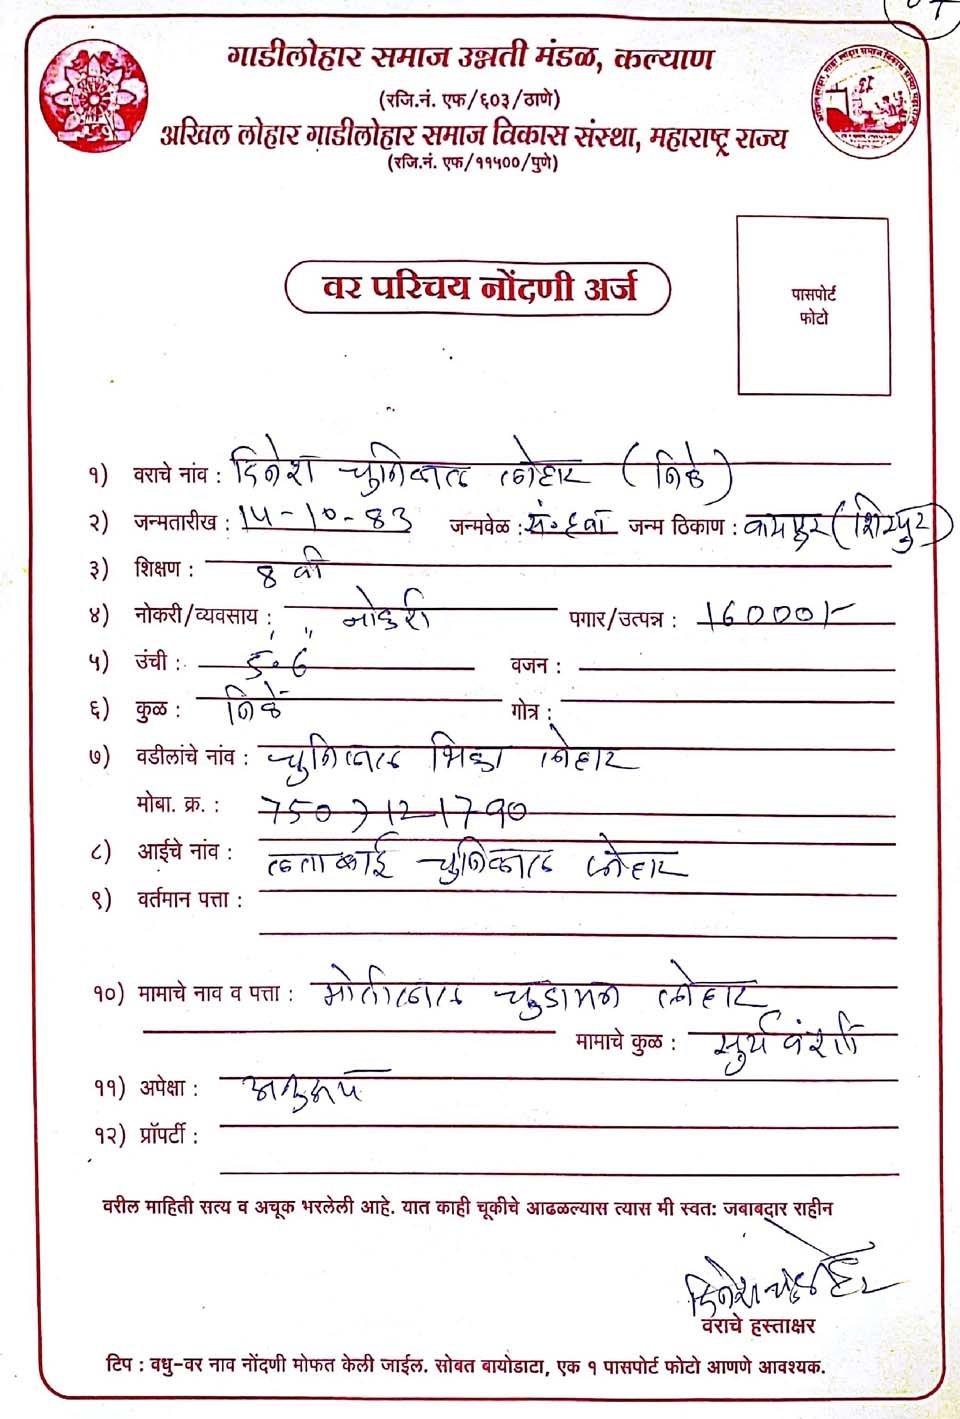 गाडीलोहार समाज उन्नती मंडळ, कल्याण
(रजि.नं. एफ/६०३/ठाणे)
अखिल लोहार गाडीलोहार समाज विकास संस्था, महाराष्ट्र राज्य
(रजि.नं. एफ/११५००/पुणे)
वर परिचय नोंदणी अर्ज
पासपोर्ट
फोटो
१) वराचे नांव : दिनेश चुनिलाल लोहार (निके)
२) जन्मतारीख : १५-१०-83 जन्मवेळ : सं. ६वा जन्म ठिकाण : (शिरपुर)
३) शिक्षण : ८ वी
४) नोकरी/व्यवसाय : नोकरी पगार/उत्पन्न : 16000/-
५) उंची : 5.6 वजन :
६) कुळ : निके गोत्र :
७) वडीलांचे नांव : चुनिलाल भिका लोहार
मोबा. क्र. :
८) आईचे नांव : लताबाई चुनिलाल लोहार
९) वर्तमान पत्ता :
१०) मामाचे नाव व पत्ता : मोतीलाल चुडामन लोहार
मामाचे कुळ : सुर्यवंशी
११) अपेक्षा : अनुरूप
१२) प्रॉपर्टी :
वरील माहिती सत्य व अचूक भरलेली आहे. यात काही चूकीचे आढळल्यास त्यास मी स्वत: जबाबदार राहीन
वराचे हस्ताक्षर
टिप : वधु-वर नाव नोंदणी मोफत केली जाईल. सोबत बायोडाटा, एक १ पासपोर्ट फोटो आणणे आवश्यक.